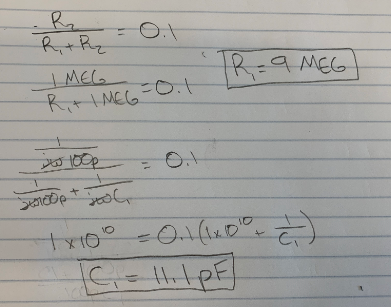 R₂ / (R₁ + R₂) = 0.1
R₁ = 9 MEG
1 MEG / (R₁ + 1 MEG) = 0.1
(1 / 100p) / (1 / 100p + 1 / C₁) = 0.1
1 x 10¹⁰ = 0.1 (1x10¹⁰ + 1/C₁)
C₁ = 11.1 pF